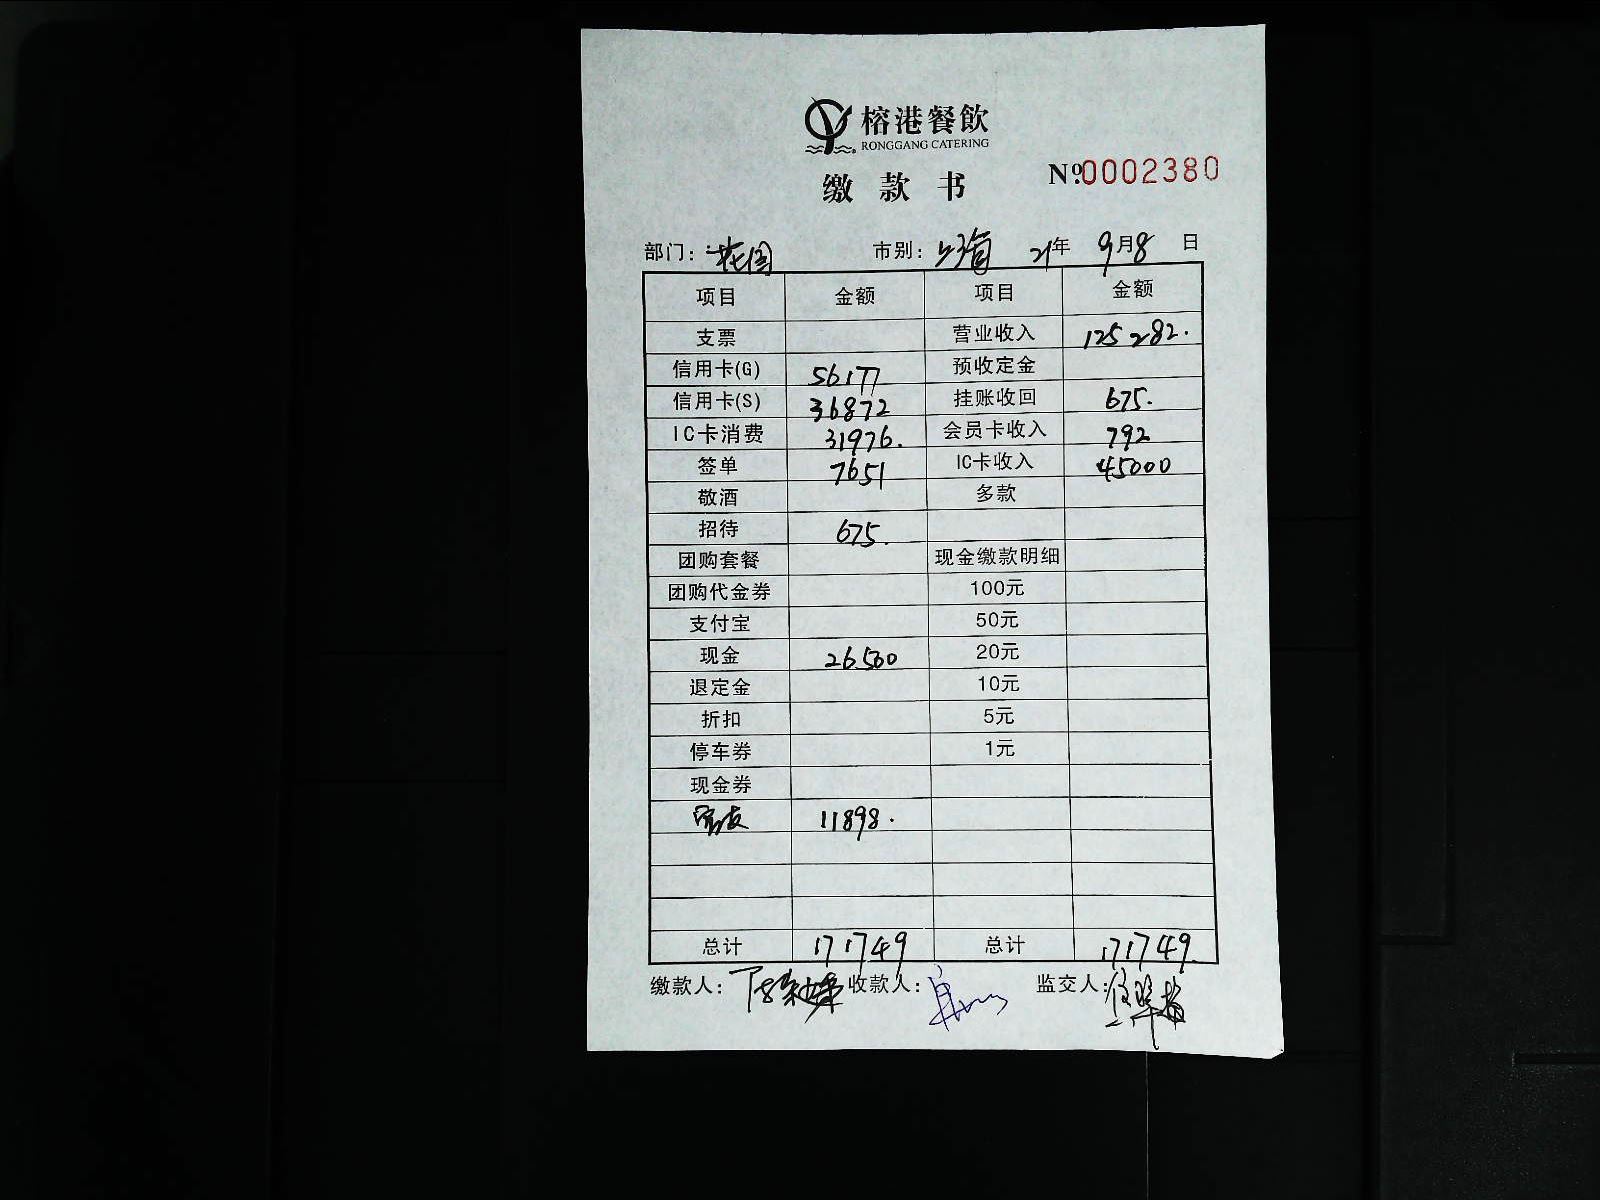 榕港餐飲
RONGGANG CATERING
缴款书
Nº.0002380
部门: 花园 市别: 21年 9月8日
项目 金额 项目 金额
支票 营业收入 125282.
信用卡(G) 56177 预收定金
信用卡(S) 36872 挂账收回 675.
IC卡消费 31976. 会员卡收入 792
签单 7651 IC卡收入 45000
敬酒 多款
招待 675.
团购套餐 现金缴款明细
团购代金券 100元
支付宝 50元
现金 26500 20元
退定金 10元
折扣 5元
停车券 1元
现金券
11898.
总计 171749 总计 171749.
缴款人: 收款人: 监交人: